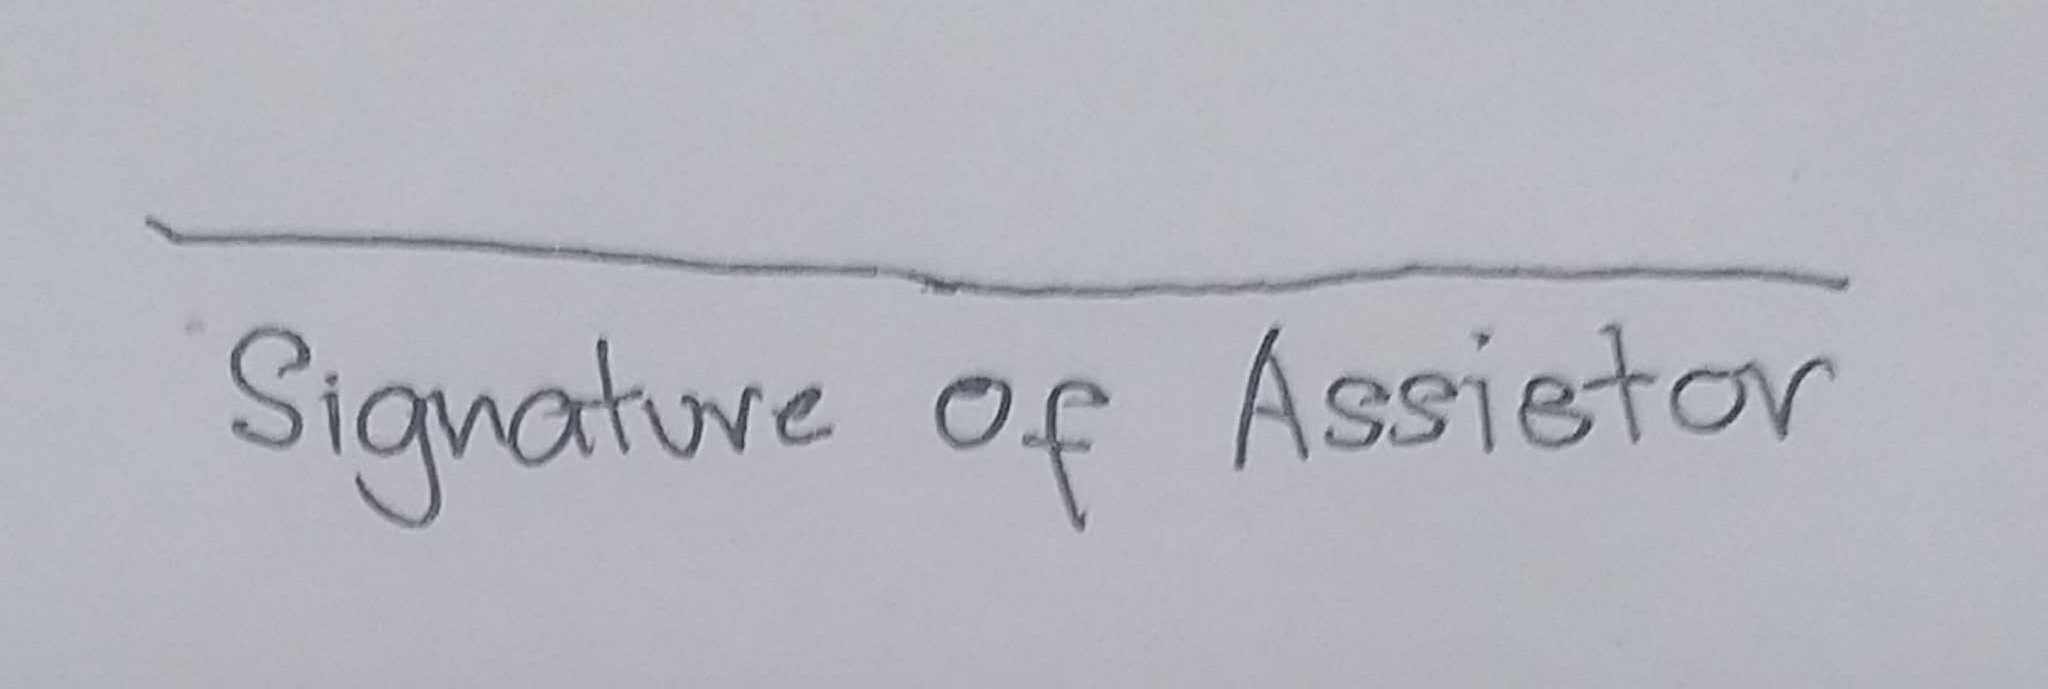 Signature of Assistor